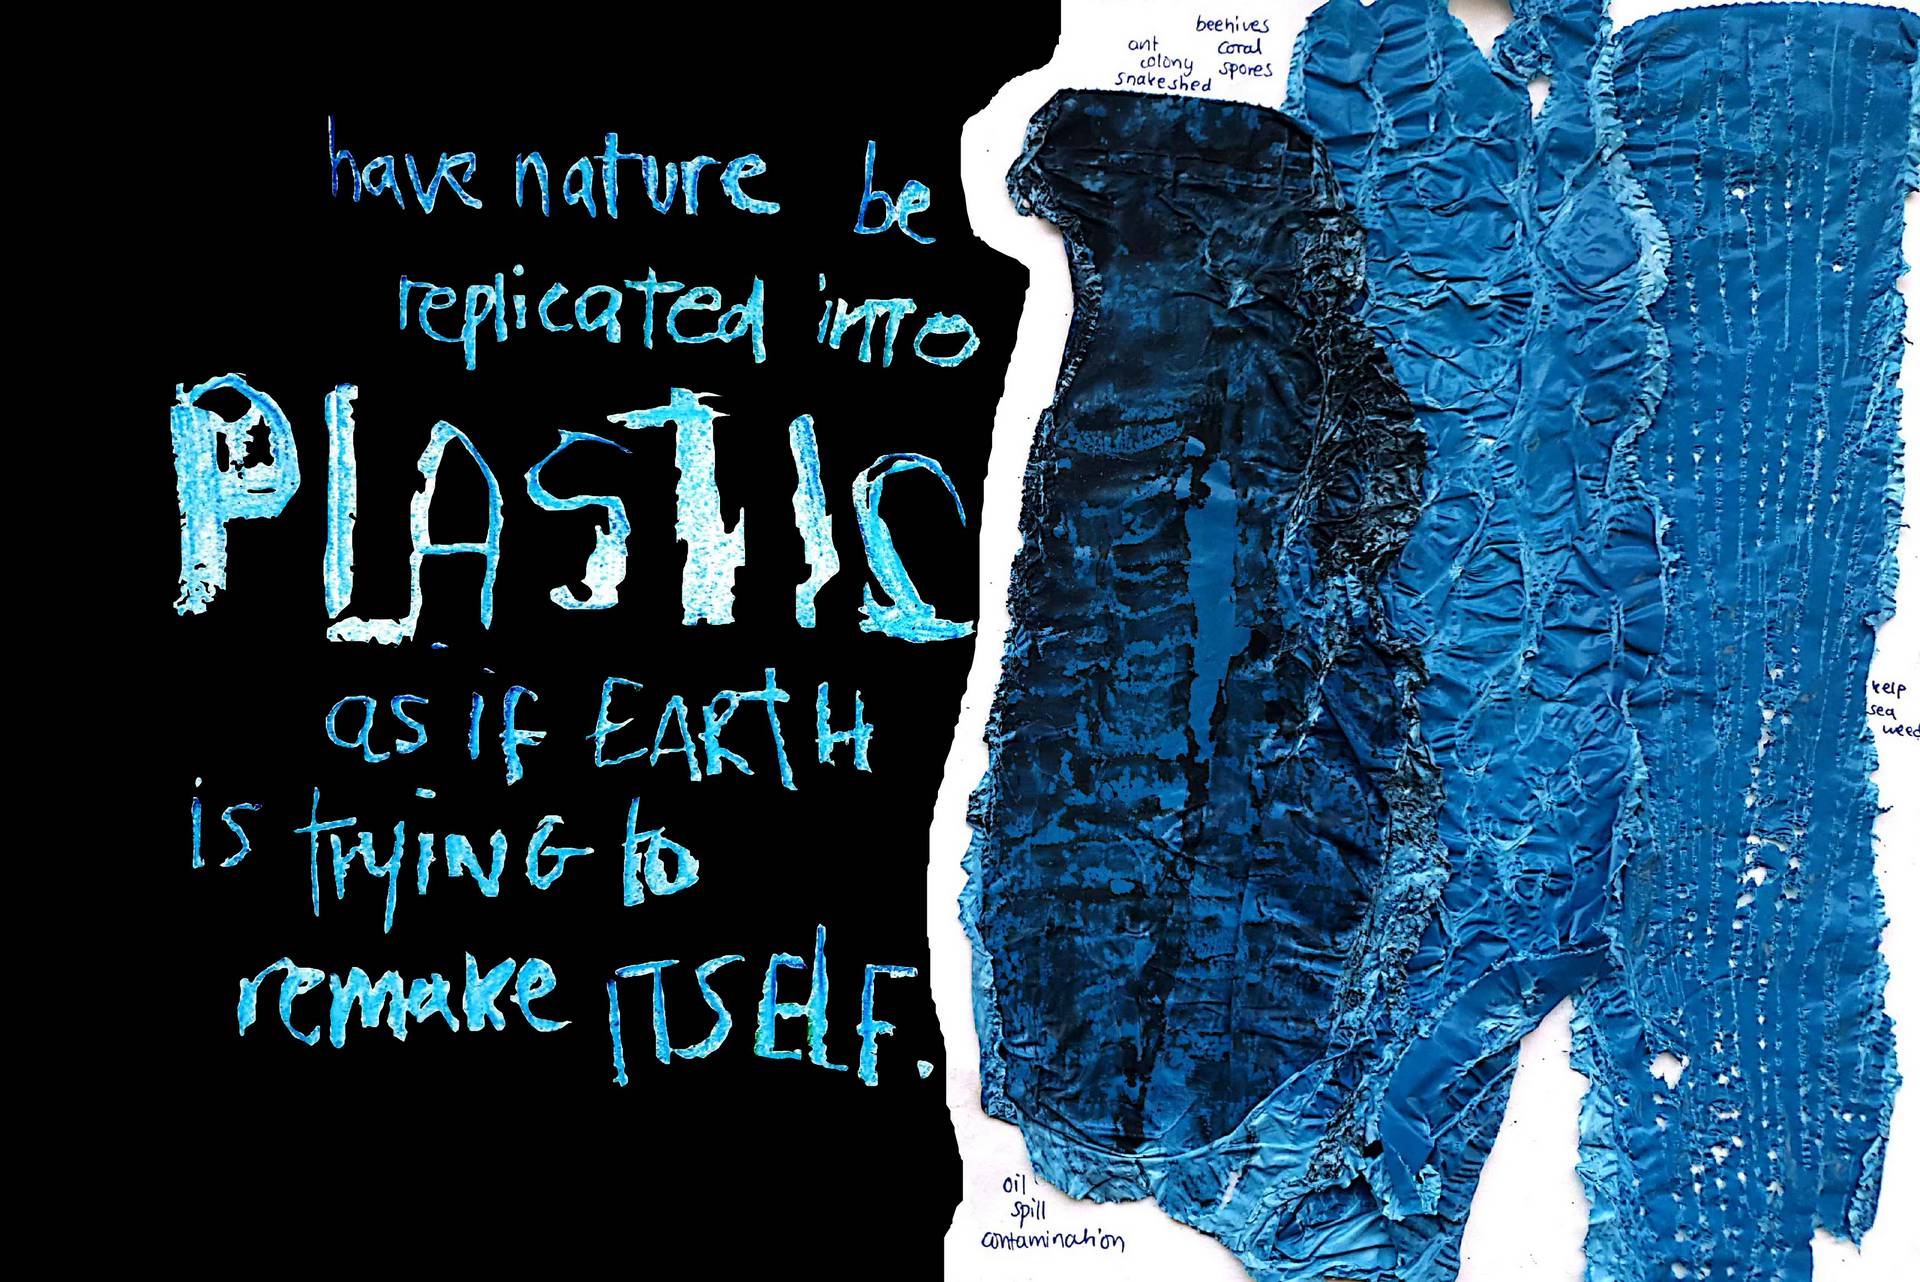 have nature be
replicated into
PLASTIC
as if EARTH
is tryING to
remake ITSELF.
beehives
ant coral
colony spores
snakeshed
kelp
sea
weed
oil
spill
contamination